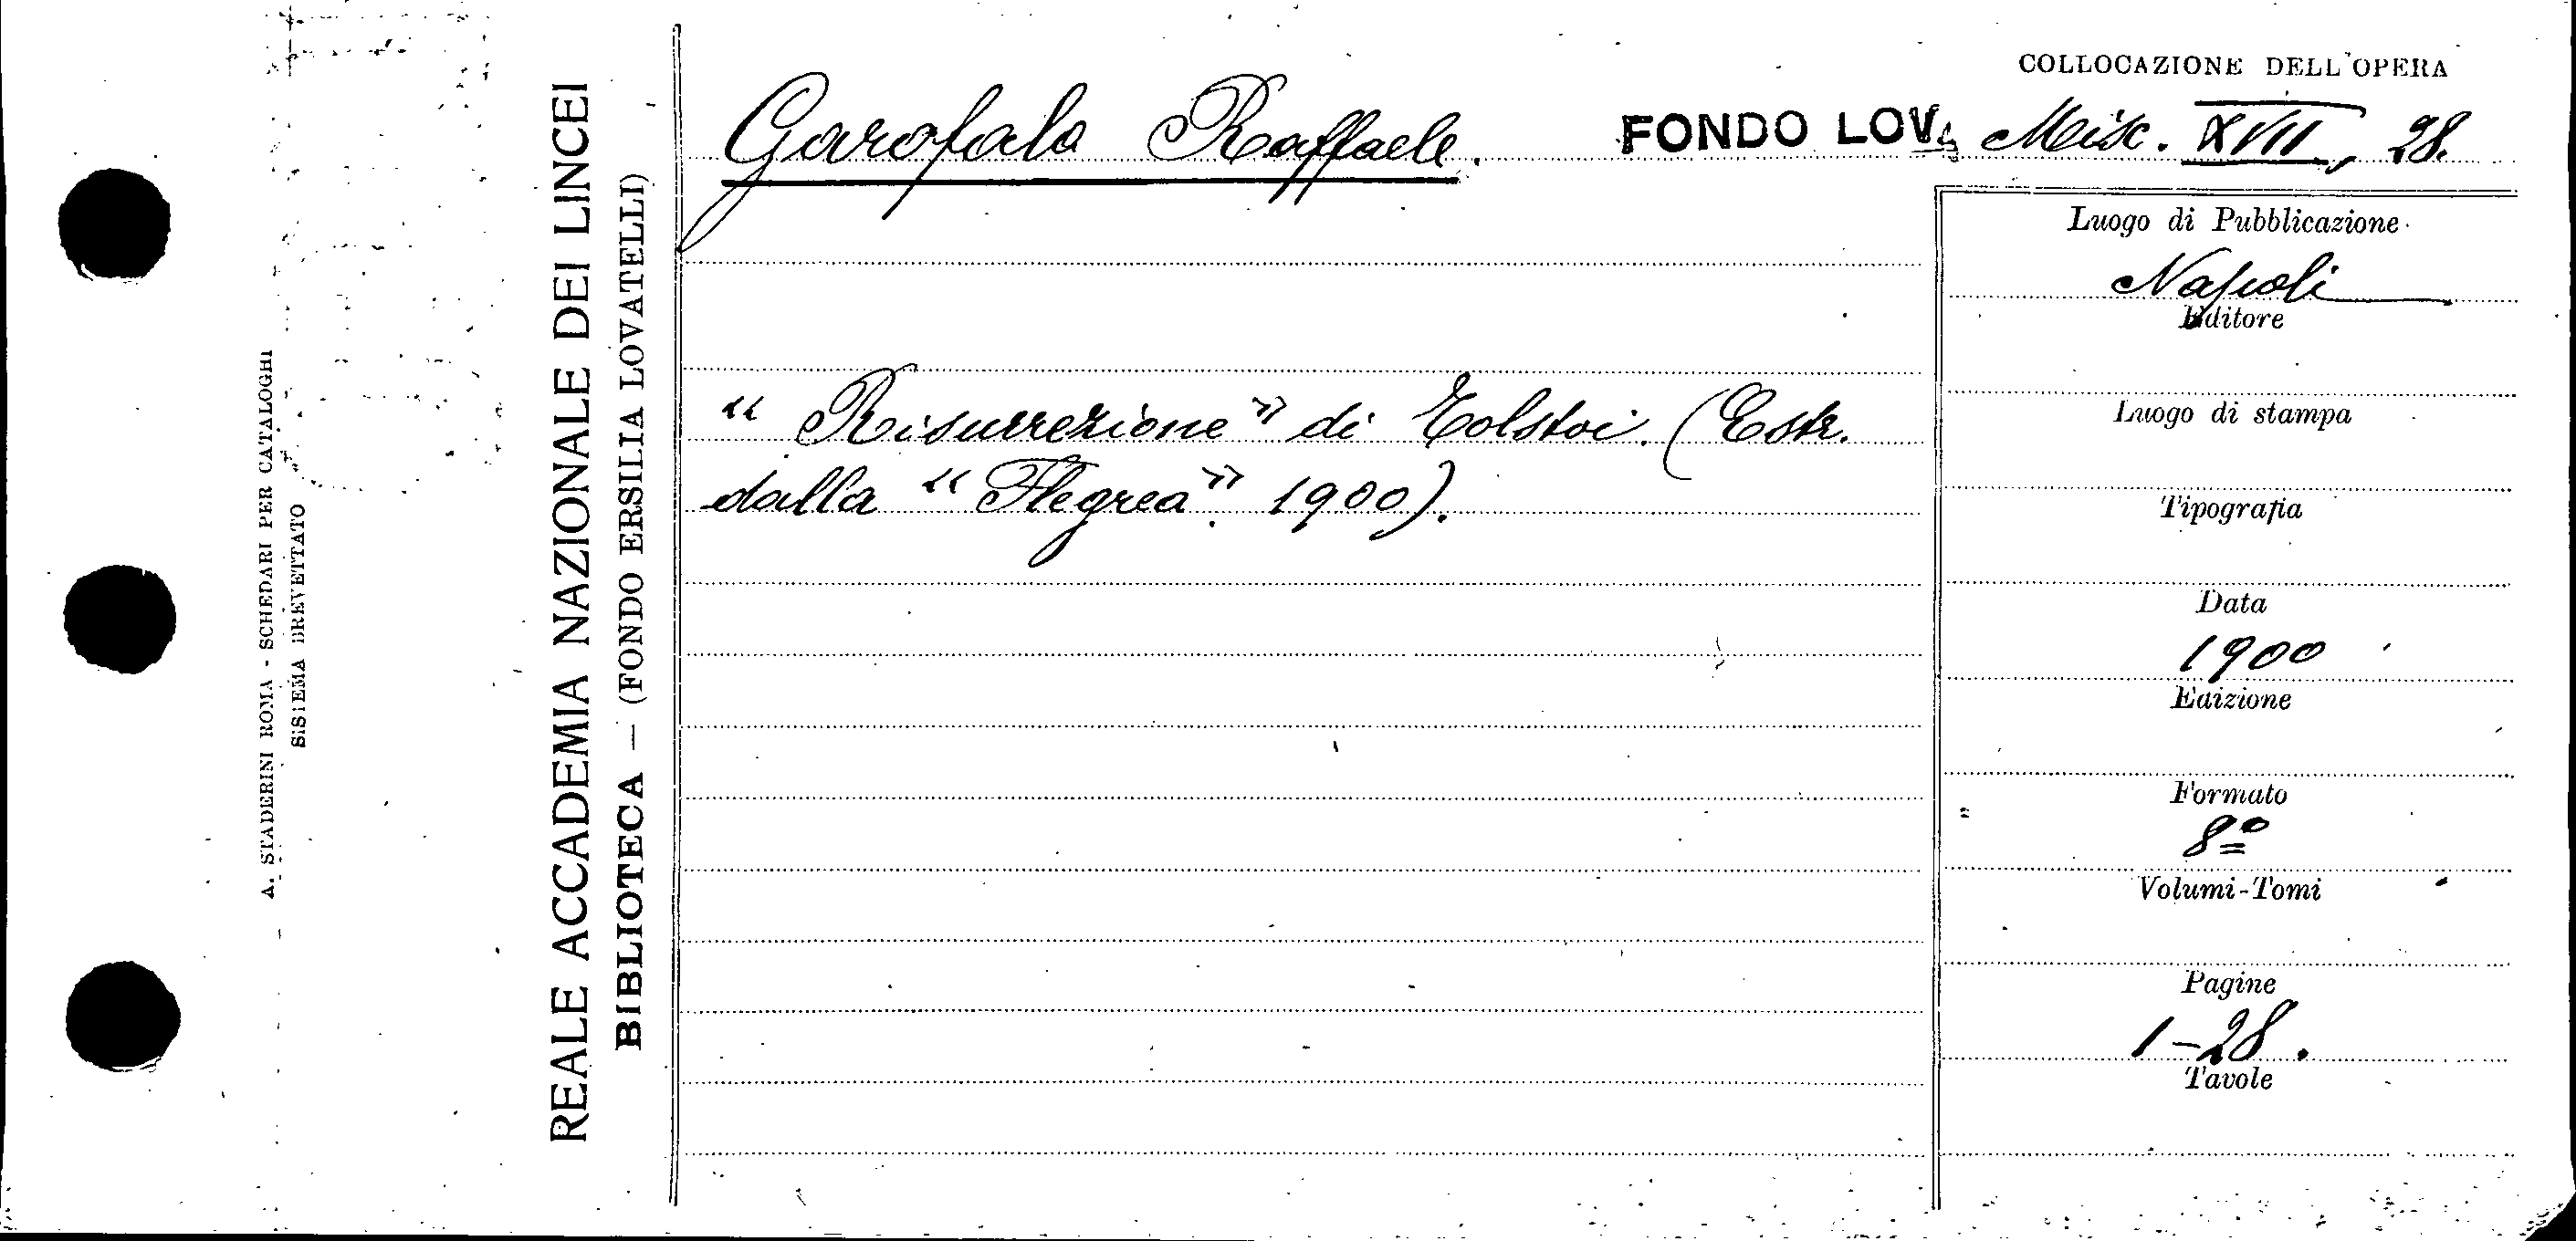 COLLOCAZIONE DELL'OPERA
Garofalo Raffaele.
FONDO LOV. Misc. XVII, 28.
"Risurrezione" di Tolstoi. (Estr.
dalla "Flegrea" 1900).
Luogo di Pubblicazione
Napoli
Editore
Luogo di stampa
Tipografia
Data
1900
Edizione
Formato
8º
Volumi-Tomi
Pagine
1-28.
Tavole
REALE ACCADEMIA NAZIONALE DEI LINCEI
BIBLIOTECA — (FONDO ERSILIA LOVATELLI)
A. STADERINI ROMA - SCHEDARI PER CATALOGHI
SISTEMA BREVETTATO